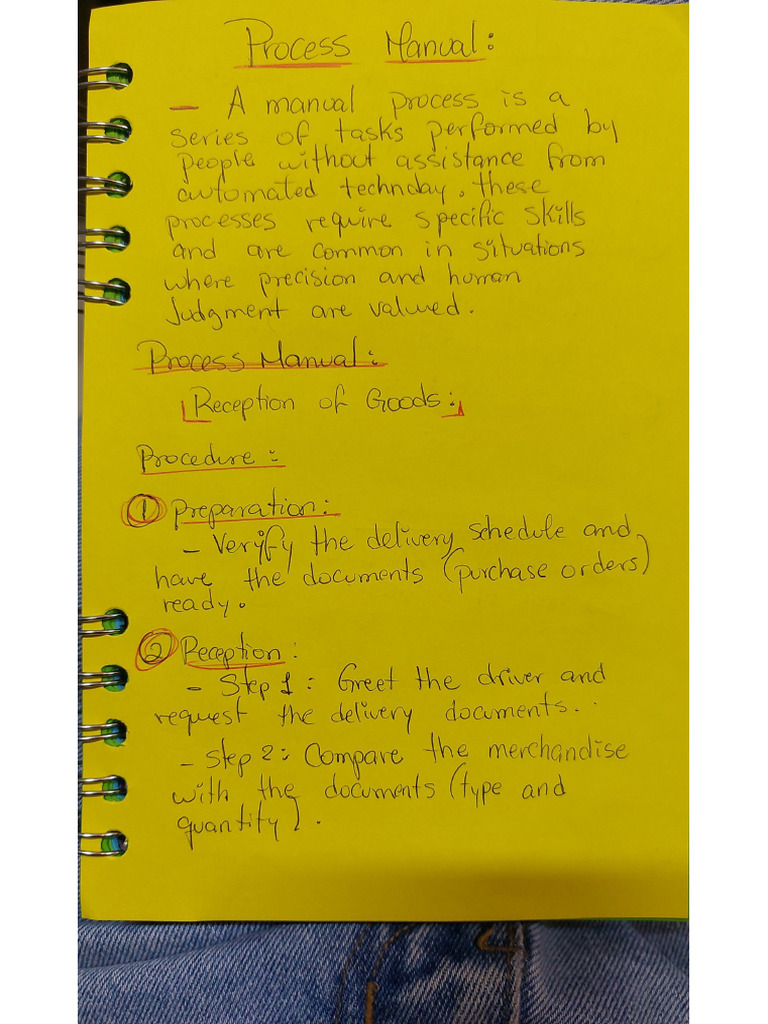 Process Manual:
– A manual process is a
series of tasks performed by
people without assistance from
automated technday. these
processes require specific skills
and are common in situations
where precision and human
Judgment are valued.
Process Manual:
Reception of Goods:
Procedure:
1 preparation:
– Veryfy the delivery schedule and
have the documents (purchase orders)
ready.
2 Reception:
– Step 1: Greet the driver and
request the delivery documents..
– Step 2: Compare the merchandise
with the documents (type and
quantity).